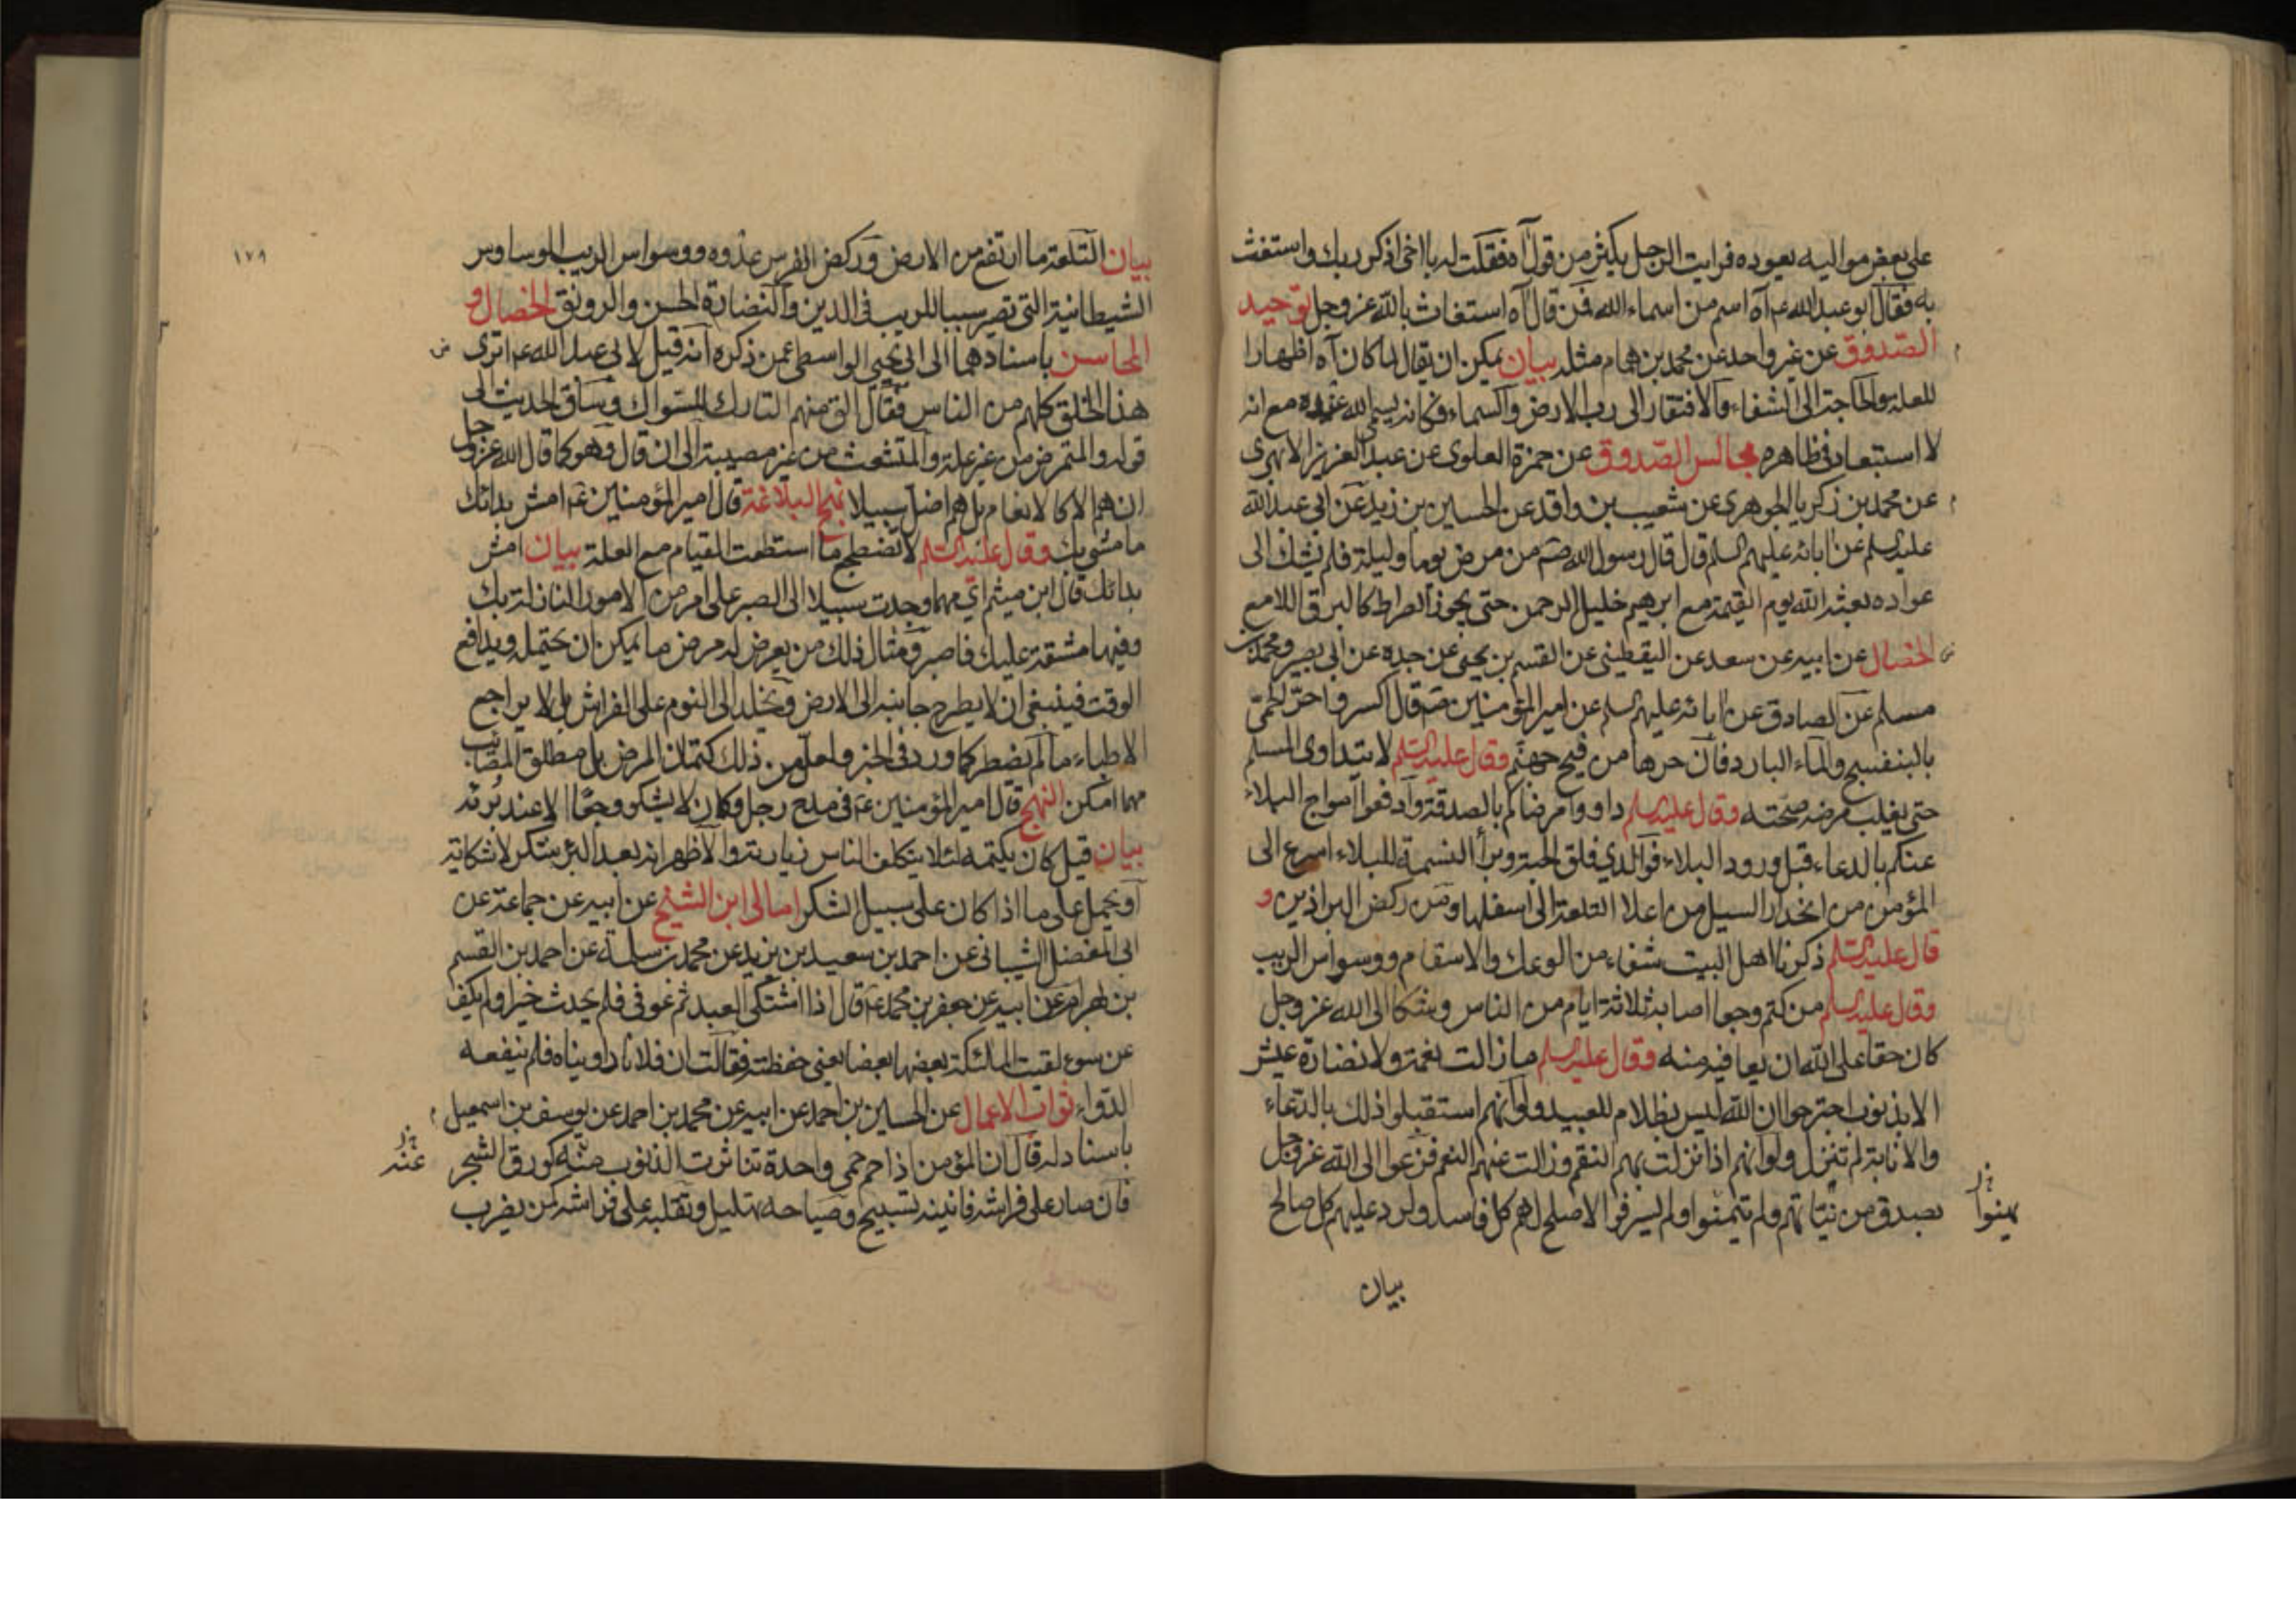 على بعض مواليه يعوده فرايت الرجل يكثر من قول آه فقلت له يا اخى اذكر ربك واستغث
به فقال ابو عبد الله ع آه اسم من اسماء الله فمن قال آه استغاث بالله عز وجل توحيد
الصدوق عن غير واحد عن محمد بن همام مثله بيان يمكن ان يقال لما كان آه اظهارا
للعلة والحاجة الى الشفاء والافتقار الى رب الارض والسماء فكانه يسمى الله عنده مع انه
لا استبعاد فى ظاهره مجالس الصدوق عن حمزة العلوى عن عبد العزيز الابهرى
عن محمد بن زكريا الجوهرى عن شعيب بن واقد عن الحسين بن زيد عن ابى عبد الله
عليه السلم عن ابائه عليهم السلم قال قال رسول الله ص من مرض يوما وليلة فلم يشك الى
عواده بعثه الله يوم القيمة مع ابرهيم خليل الرحمن حتى يجوز الصراط كالبرق اللامع
الخصال عن ابيه عن سعد عن اليقطينى عن القسم بن يحيى عن جده عن ابى بصير ومحمد بن
مسلم عن الصادق عن ابائه عليهم السلم عن امير المؤمنين ص قال اكسروا حر الحمى
بالبنفسج والماء البارد فان حرها من فيح جهنم وقال عليه السلم لا يتداوى المسلم
حتى يغلب مرضه صحته وقال عليه السلم داووا مرضاكم بالصدقة وادفعوا امواج البلاء
عنكم بالدعاء قبل ورود البلاء فوالذي فلق الحبة وبرأ النسمة للبلاء اسرع الى
المؤمن من انحدار السيل من اعلا التلعة الى اسفلها ومن ركض البراذين و
قال عليه السلم ذكرنا اهل البيت شفاء من الوعك والاسقام ووسواس الريب
وقال عليه السلم من كتم وجعا اصابه ثلاثة ايام من الناس وشكا الى الله عز وجل
كان حقا على الله ان يعافيه منه وقال عليه السلم ما زالت نعمة ولا نضارة عيش
الا بذنوب اجترحوا ان الله ليس بظلام للعبيد ولو انهم استقبلوا ذلك بالدعاء
والانابة لم تنزل ولو انهم اذا نزلت بهم النقم وزالت عنهم النعم فزعوا الى الله عز وجل
بصدق من نياتهم ولم يتمنوا ولم يسرفوا لاصلح لهم كل فاسد ولرد عليهم كل صالح
يهنوا
بيان
١٧٩
بيان التلعة ما ارتفع من الارض وركض الفرس عدوه ووسواس الريب الوساوس
الشيطانية التى تصير سببا للريب فى الدين والنضارة الحسن والرونق الخصال و
المحاسن باسنادهما الى ابى يحيى الواسطى عمن ذكره انه قيل لابى عبد الله ع اترى
هذا الخلق كلهم من الناس فقال الق منهم التارك للسواك وساق الحديث الى
قوله والمتمرض من غير علة والمتشعث من غير مصيبة الى ان قال وهو كما قال الله عز وجل
ان هم الا كالانعام بل هم اضل سبيلا نهج البلاغة قال امير المؤمنين ع امش بدائك
ما مشى بك وقال عليه السلم لا تضطجع ما استطعت القيام مع العلة بيان امش
بدائك قال ابن ميثم اي مهما وجدت سبيلا الى الصبر على امر من الامور النازلة بك
وفيها مشقة عليك فاصبر ومثال ذلك من يعرض له مرض ما يمكن ان يحتمله ويدافع
الوقت فينبغى ان لا يطرح جانبه الى الارض ويخلد الى النوم على الفراش بل لا يراجع
الاطباء ما لم يضطر كما ورد فى الخبر ولعل من ذلك كتمان المرض بل مطلق المصائب
مهما امكن النهج قال امير المؤمنين ع فى مدح رجل وكان لا يشكو وجعا الا عند برئه
بيان قيل كان يكتمه لئلا يتكلف الناس زيارته والاظهر انه بعد البرء شكر لا شكاية
او يحمل على ما اذا كان على سبيل الشكر امالى ابن الشيخ عن ابيه عن جماعة عن
ابى المفضل الشيبانى عن احمد بن سعيد بن يزيد عن محمد بن سلمة عن احمد بن القسم
بن بهرام عن ابيه عن جعفر بن محمد ع قال اذا اشتكى العبد ثم عوفى فلم يحدث خيرا ولم يكف
عن سوء لقيت الملئكة بعضها بعضا يعنى حفظته فقالت ان فلانا داويناه فلم ينفعه
الدواء ثواب الاعمال عن الحسين بن احمد عن ابيه عن محمد بن احمد عن يوسف بن اسمعيل
باسناد له قال ان المؤمن اذا حم حمى واحدة تناثرت الذنوب منه كورق الشجر
عنه
فان صار على فراشه فانينه تسبيح وصياحه تهليل وتقلبه على فراشه كمن يضرب